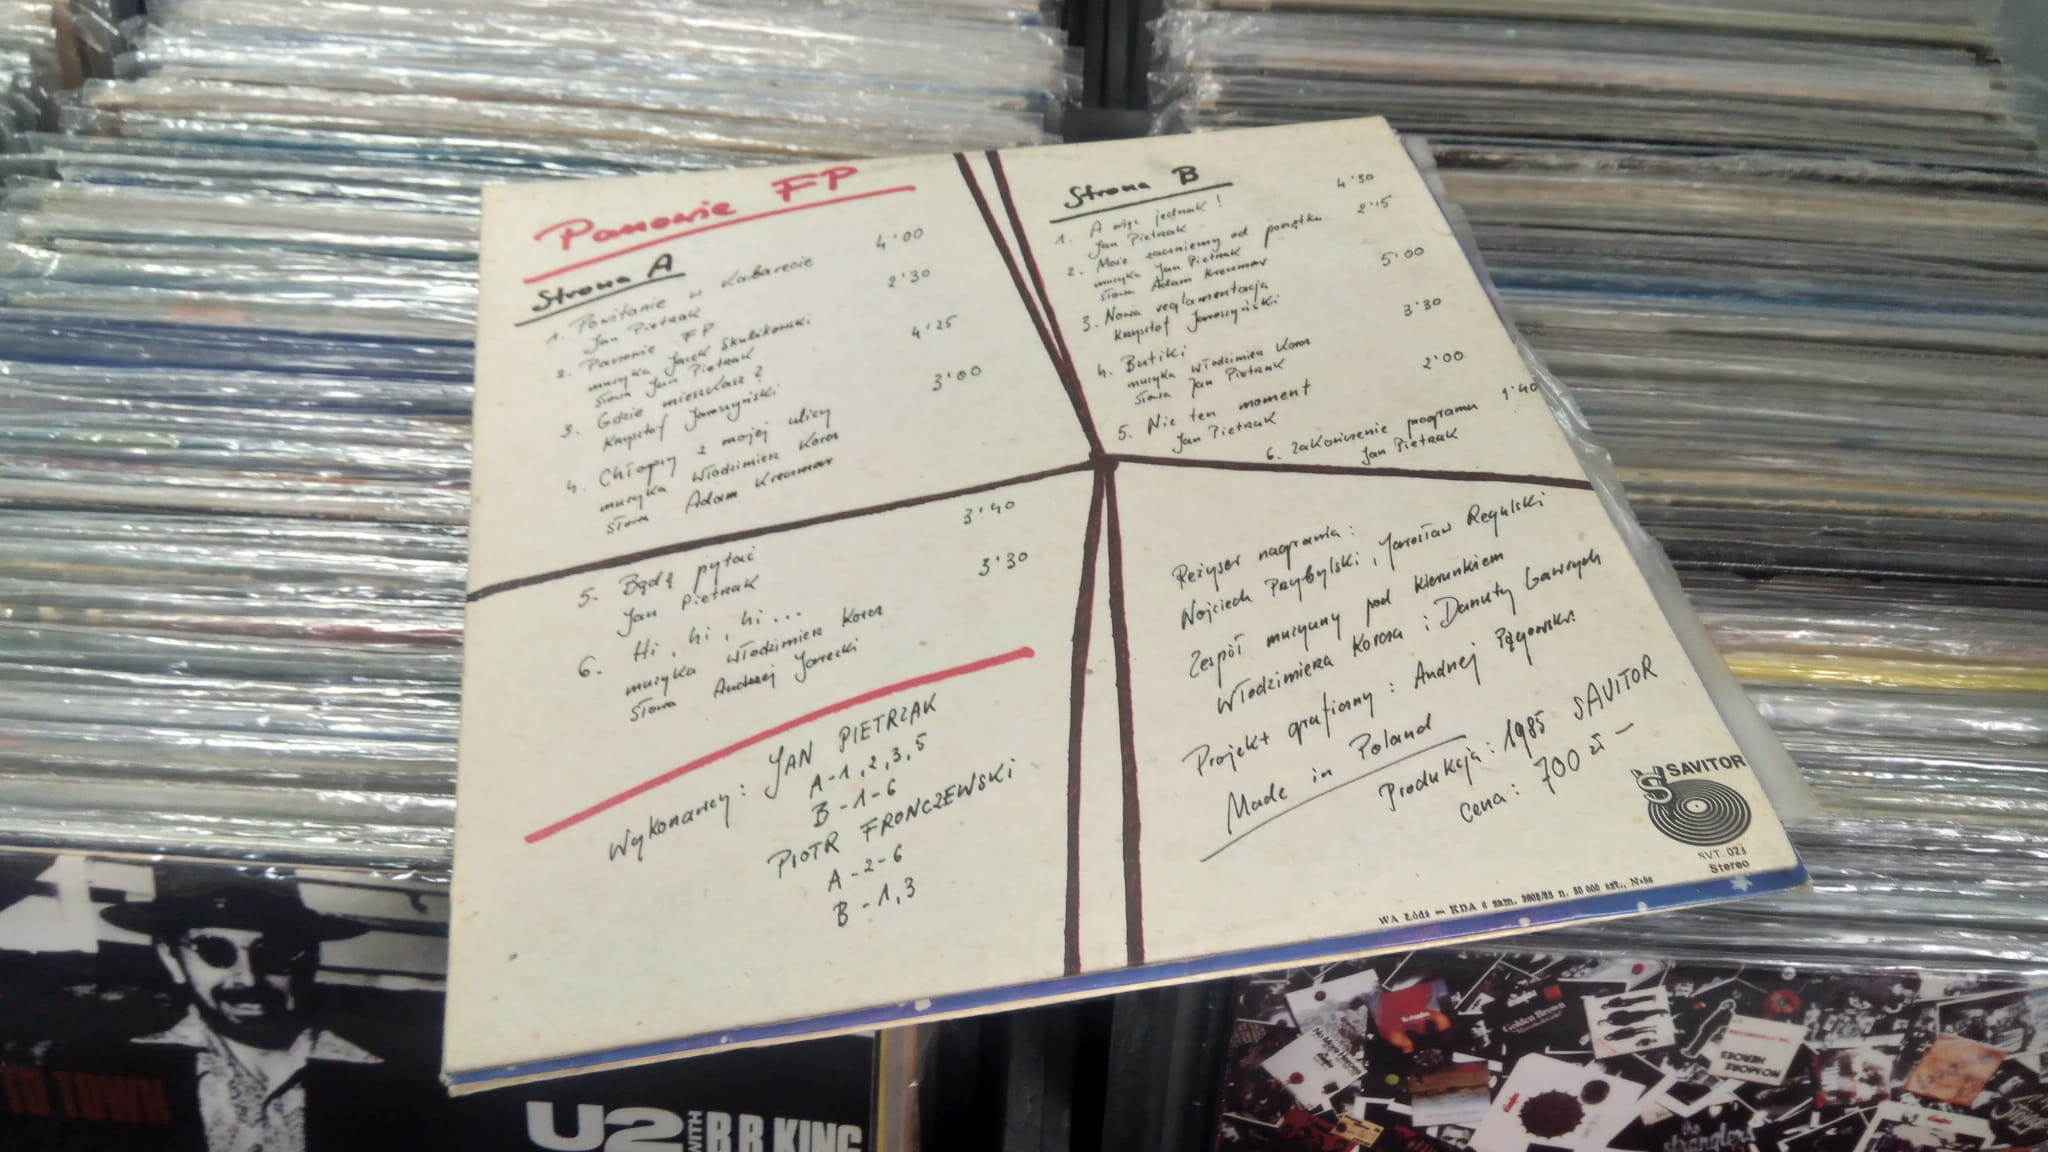 Panowie FP
Strona A
1. Powitanie w Kabarecie 4'00
Jan Pietrzak
2. Panowie FP 2'30
muzyka Jacek Skubikowski
słowa Jan Pietrzak
3. Gdzie mieszkasz? 4'25
Krzysztof Jaroszyński
4. Chłopcy z mojej ulicy 3'00
muzyka Włodzimierz Korcz
słowa Adam Kreczmar
5. Bądź pytać 3'40
Jan Pietrzak
6. Hi, hi, hi... 3'30
muzyka Włodzimierz Korcz
słowa Andrzej Jarecki
Wykonawcy: JAN PIETRZAK
A-1,2,3,5
B-1-6
PIOTR FRONCZEWSKI
A-2-6
B-1,3
Strona B
1. A więc jednak! 4'30
Jan Pietrzak
2. Może zaczniemy od początku 2'15
muzyka Jan Pietrzak
słowa Adam Kreczmar
3. Nowa reglamentacja 5'00
Krzysztof Jaroszyński
4. Butiki 3'30
muzyka Włodzimierz Korcz
słowa Jan Pietrzak
5. Nie ten moment 2'00
Jan Pietrzak
6. Zakończenie programu 1'40
Jan Pietrzak
Reżyser nagrania:
Wojciech Przybylski, Jarosław Regulski
Zespół muzyczny pod kierunkiem
Włodzimierza Korcza i Danuty Gawrych
Projekt graficzny: Andrzej Pągowski
Made in Poland
Produkcja: 1985 SAVITOR
cena: 700 zł —
SAVITOR
SVT. 023
Stereo
WA Łódź — KDA 6 zam. 3602/85 n. 50 000 szt.,
TO TOWN
U2 WITH B.B. KING
Golden Brown
NO MORE HEROES
the stranglers